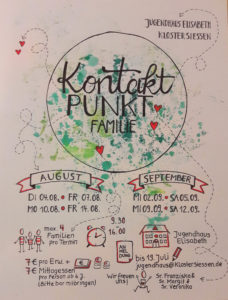 JUGENDHAUS ELISABETH
KLOSTER SIESSEN
Kontakt
PUNKT
FAMILIE
AUGUST
SEPTEMBER
DI 04.08. • FR 07.08.
MO 10.08. • FR 14.08.
MI 02.09. • SA 05.09.
MI 09.09. • SA 12.09.
max. 4
Familien
pro Termin
9.30
-
16.00
Jugendhaus
Elisabeth
7€ pro Erw.
7€ Mittagessen
pro Person ab 3 J.
(Bitte bar mitbringen)
AN
MEL
DUNG
bis 19. Juli
jugendhaus@klostersiessen.de
Wir freuen
uns!
Sr. Franziska &
Sr. Margit &
Sr. Veronika